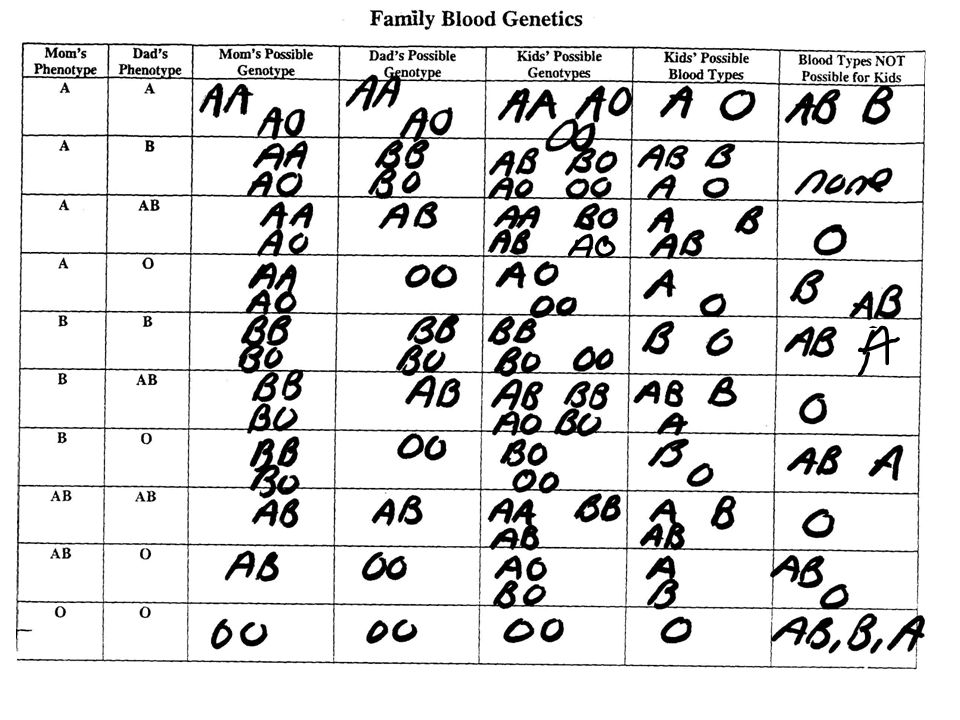 Family Blood Genetics
Mom's Phenotype Dad's Phenotype Mom's Possible Genotype Dad's Possible Genotype Kids' Possible Genotypes Kids' Possible Blood Types Blood Types NOT Possible for Kids
A A AA AO AA AO AA AO OO A O AB B
A B AA AO BB BO AB BO AO OO AB B A O none
A AB AA AO AB AA BO AB AO A B AB O
A O AA AO OO AO OO A O B AB
B B BB BO BB BO BB BO OO B O AB A
B AB BB BO AB AB BB AO BO AB B A O
B O BB BO OO BO OO B O AB A
AB AB AB AB AA BB AB A B AB O
AB O AB OO AO BO A B AB O
O O OO OO OO O AB, B, A